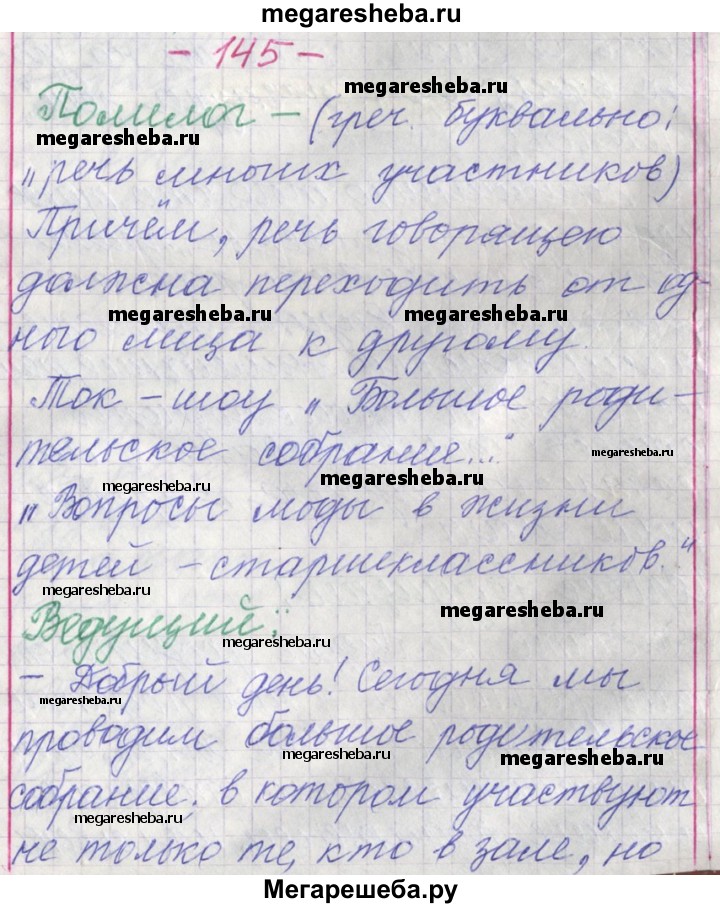 megaresheba.ru
- 145 -
megaresheba.ru
Полилог - (греч. буквально:
megaresheba.ru
"речь многих участников)
Причём, речь говорящего
должна переходить от од-
megaresheba.ru megaresheba.ru
ного лица к другому.
Ток - шоу "Большое роди-
тельское собрание..."
megaresheba.ru
megaresheba.ru megaresheba.ru
"Вопросы моды в жизни
детей - старшеклассников."
megaresheba.ru
Ведущий:
megaresheba.ru
- Добрый день! Сегодня мы
megaresheba.ru
проводим большое родительское
megaresheba.ru megaresheba.ru
собрание, в котором участвуют
megaresheba.ru
не только те, кто в зале, но
Мегарешеба.ру